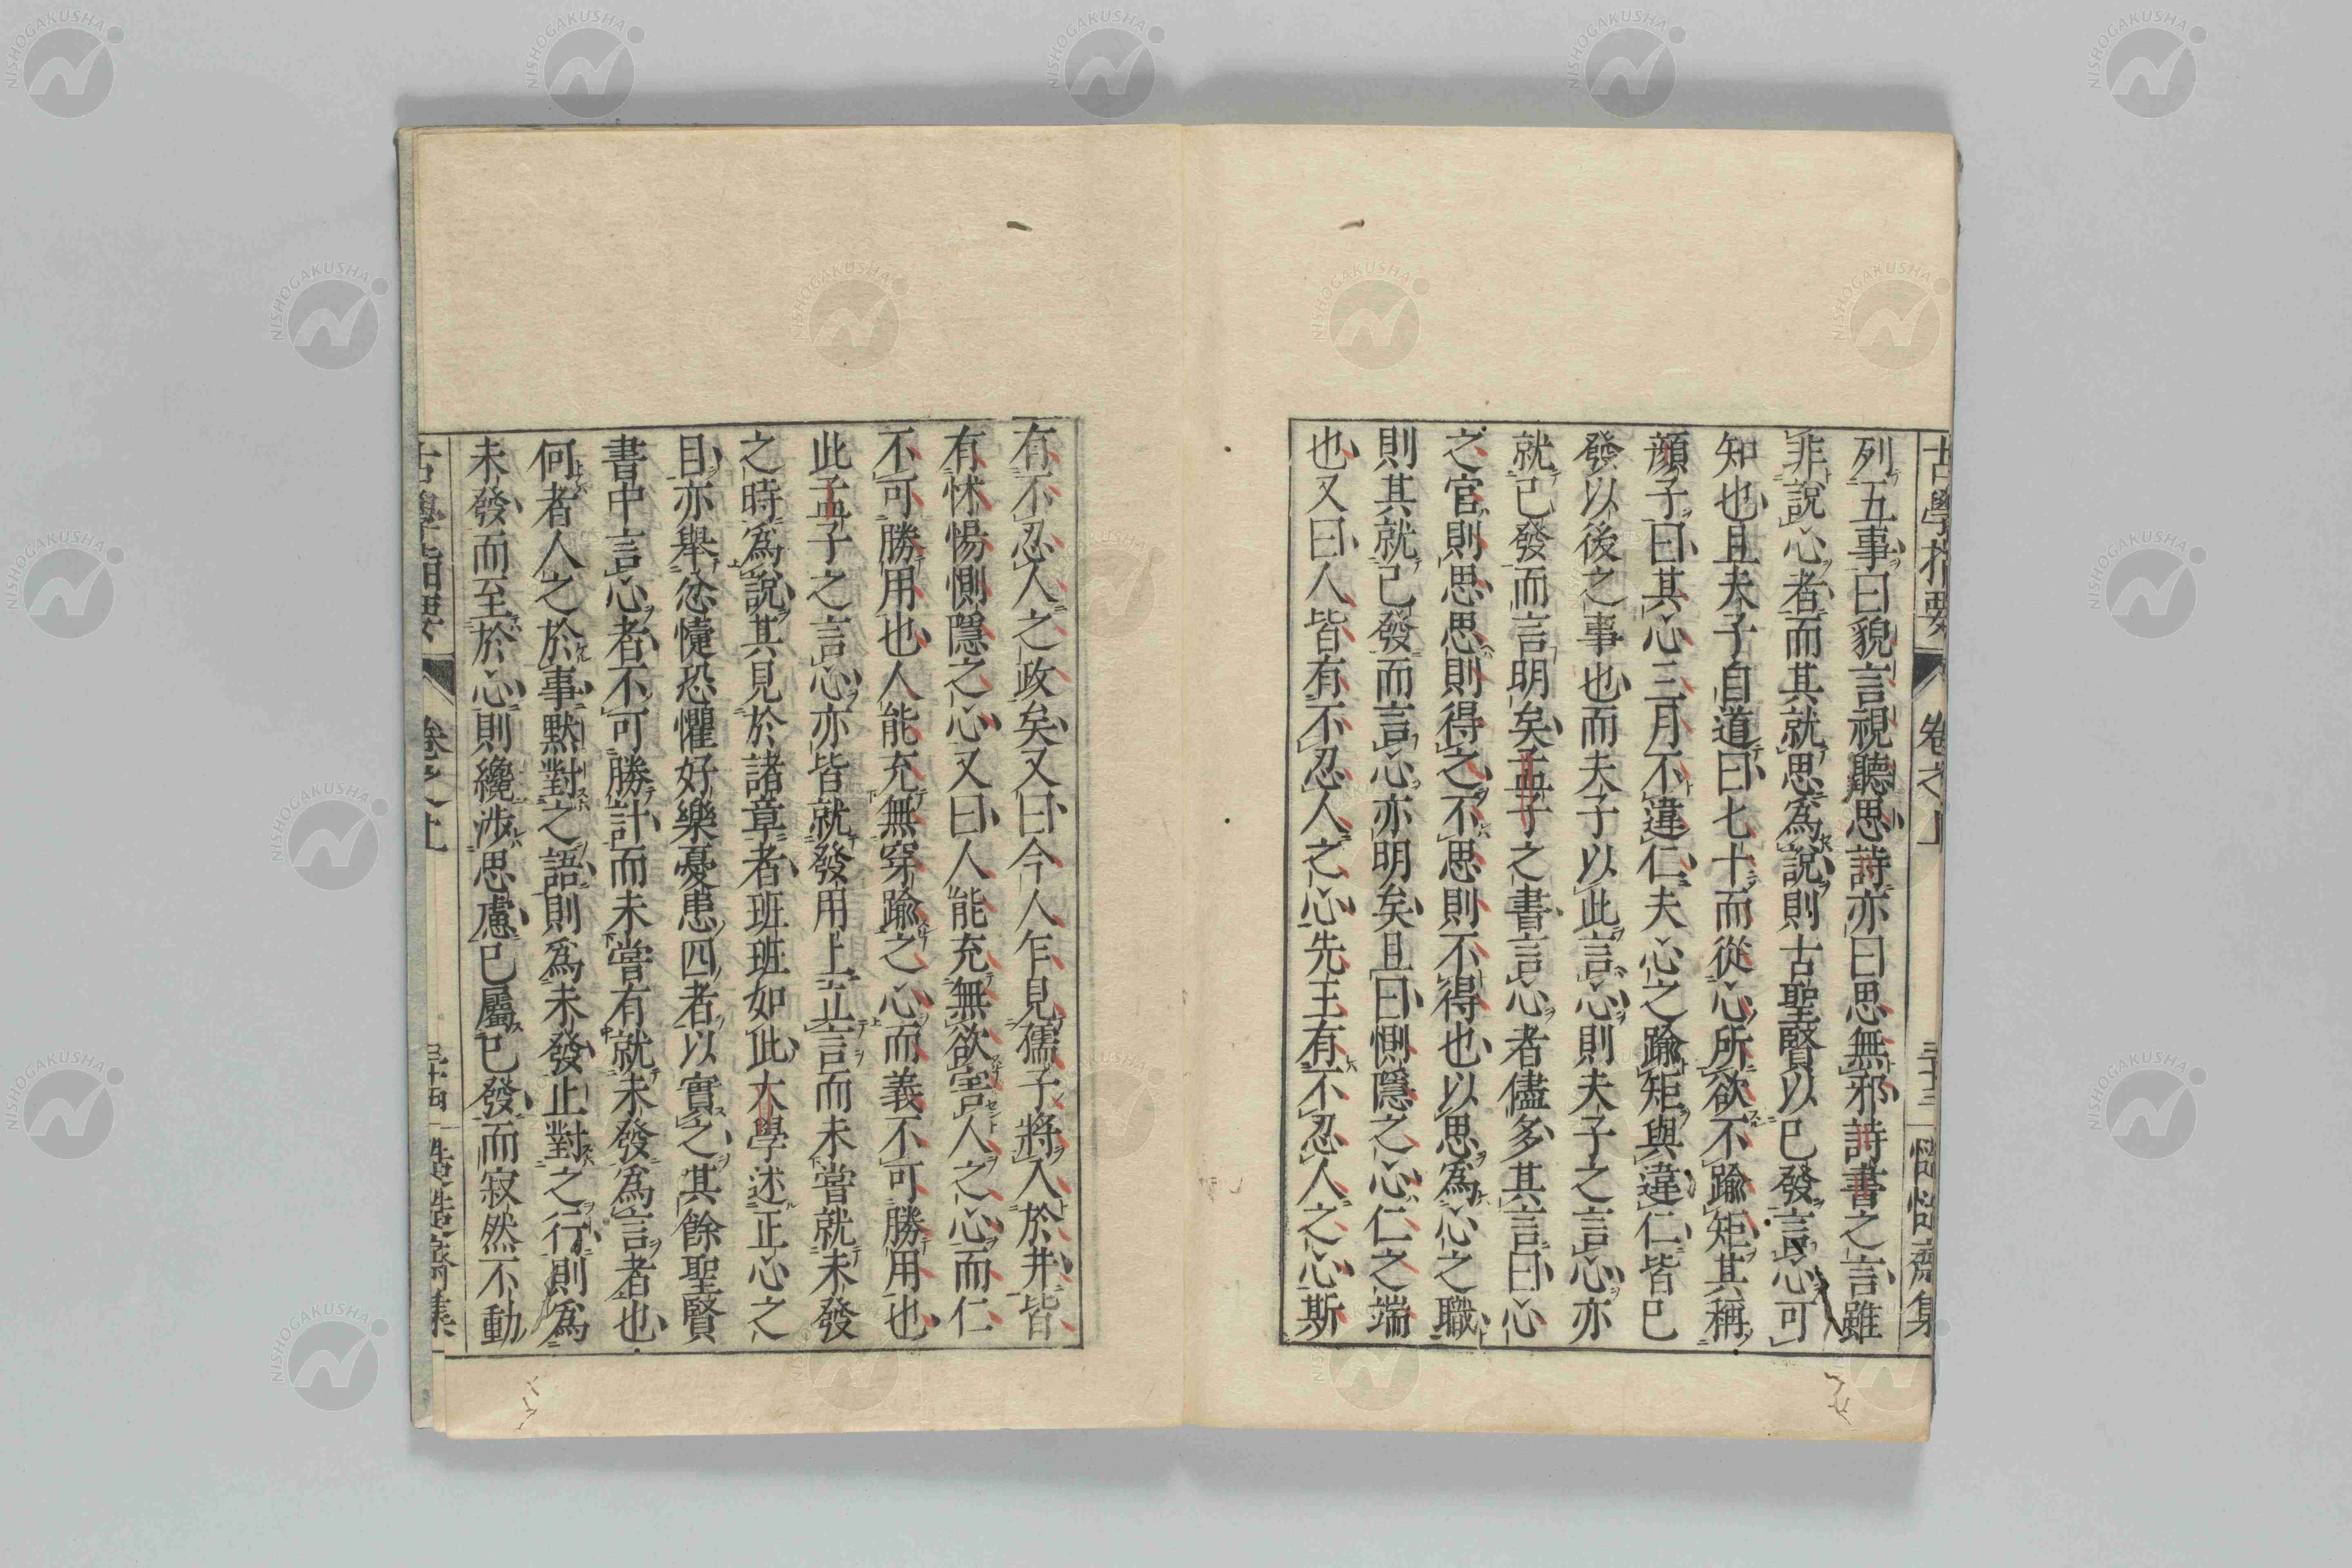 古學指要 卷之上 三十三 慥慥齋集
列五事曰貌言視聽思詩亦曰思無邪詩書之言雖
非説心者而其就思爲説則古聖賢以已發言心可
知也且夫子自道曰七十而從心所欲不踰矩其稱
顔子曰其心三月不違仁夫心之踰矩與違仁皆已
發以後之事也而夫子以此言心則夫子之言心亦
就已發而言明矣孟子之書言心者儘多其言曰心
之官則思思則得之不思則不得也以思爲心之職
則其就已發而言心亦明矣且曰惻隱之心仁之端
也又曰人皆有不忍人之心先王有不忍人之心斯
有不忍人之政矣又曰今人乍見孺子將入於井皆
有怵惕惻隱之心又曰人能充無欲害人之心而仁
不可勝用也人能充無穿踰之心而義不可勝用也
此孟子之言心亦皆就發用上立言而未嘗就未發
之時爲説其見於諸章者班班如此大學述正心之
目亦舉忿懥恐懼好樂憂患四者以實之其餘聖賢
書中言心者不可勝計而未嘗有就未發爲言者也
何者人之於事默對之語則爲未發止對之行則爲
未發而至於心則纔涉思慮已屬已發而寂然不動
古學指要 卷之上 三十四 慥慥齋集
NISHOGAKUSHA